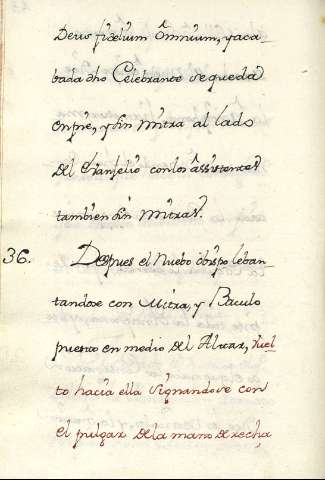 Deus fidelium omnium, y aca-
bada dho Celebrante se queda
en pie, y sin mitra al lado
del Evanjelio con los Assistentes
tambien sin mitras.
36. Despues el Nuebo obispo leban-
tandose con Mitra, y Baculo
puesto en medio del Altar, vuel
to hacia ella signandose con
el pulgar de la mano derecha